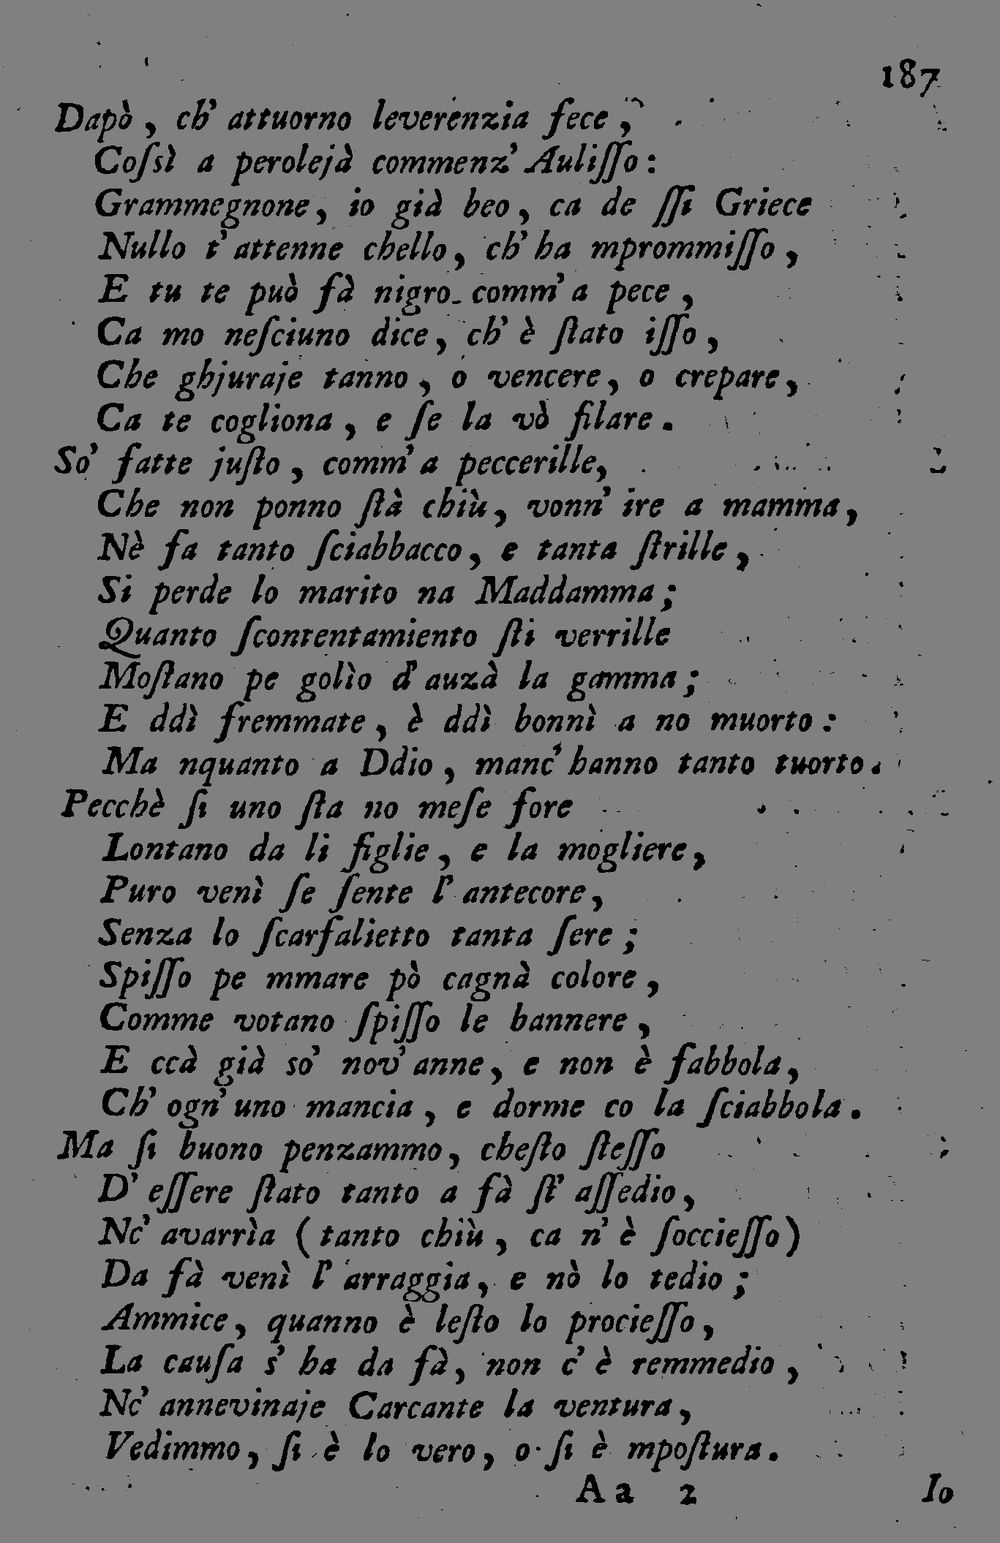 187
Dapò, ch' attuorno leverenzia fece,
Coſsì a perolejà commenz' Auliſſo:
Grammegnone, io già beo, ca de ſſi Griece
Nullo t' attenne chello, ch' ha mprommiſſo,
E tu te può fà nigro comm' a pece,
Ca mo neſciuno dice, ch' è ſtato iſſo,
Che ghjuraje tanno, o vencere, o crepare,
Ca te cogliona, e ſe la vò filare.
So' fatte juſto, comm' a peccerille,
Che non ponno ſtà chiù, vonn' ire a mamma,
Nè fa tanto ſciabbacco, e tanta ſtrille,
Si perde lo marito na Maddamma;
Quanto ſcontentamiento ſti verrille
Moſtano pe golìo d' auzà la gamma;
E ddì fremmate, è ddì bonnì a no muorto:
Ma nquanto a Ddio, manc' hanno tanto tuorto.
Pecchè ſi uno ſta no meſe fore
Lontano da li figlie, e la mogliere,
Puro venì ſe ſente l' antecore,
Senza lo ſcarfalietto tanta ſere;
Spiſſo pe mmare pò cagnà colore,
Comme votano ſpiſſo le bannere,
E ccà già so' nov' anne, e non è fabbola,
Ch' ogn' uno mancia, e dorme co la ſciabbola.
Ma ſi buono penzammo, cheſto ſteſſo
D' eſſere ſtato tanto a fà ſt' aſſedio,
Nc' avarrìa (tanto chiù, ca n' è ſoccieſſo)
Da fà venì l' arraggia, e nò lo tedio;
Ammice, quanno è leſto lo procieſſo,
La cauſa s' ha da fà, non c' è remmedio,
Nc' annevinaje Carcante la ventura,
Vedimmo, ſi è lo vero, o ſi è mpoſtura.
Aa 2 Io